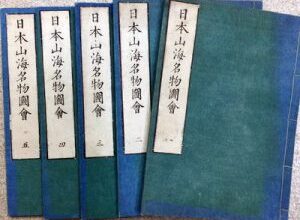 日本山海名物圖會 一
日本山海名物圖會 二
日本山海名物圖會 三
日本山海名物圖會 四
日本山海名物圖會 五